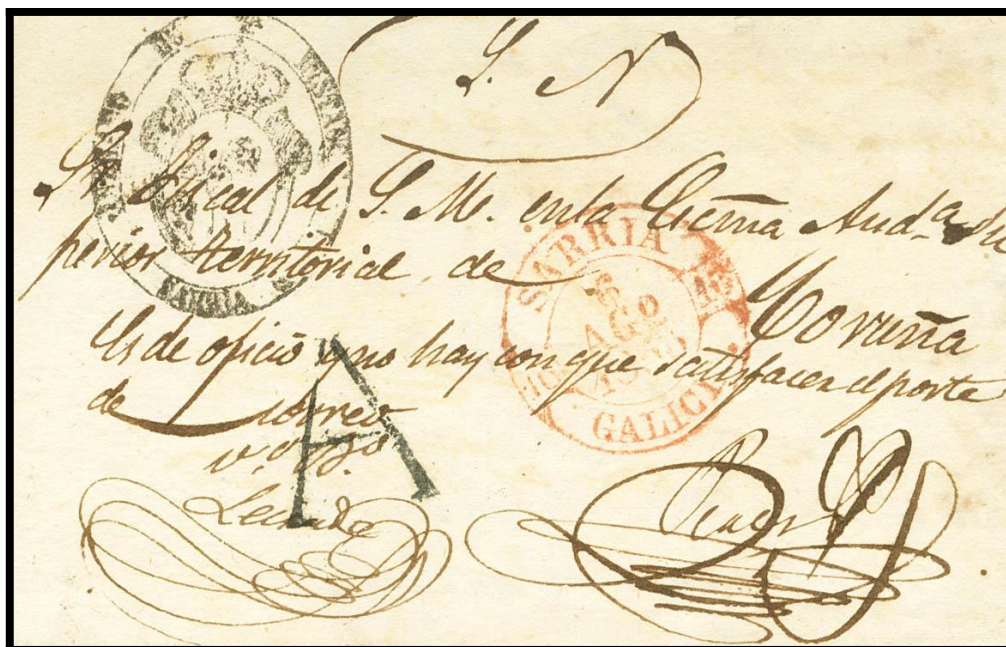 S. N
Sr Fiscal de S. M. en la Ecsma Audª Su
perior territorial de
Coruña
Es de oficio y no hay con que satisfacer el porte
de Correo
Vº Bº
SARRIA
6
AGO
GALICIA
A